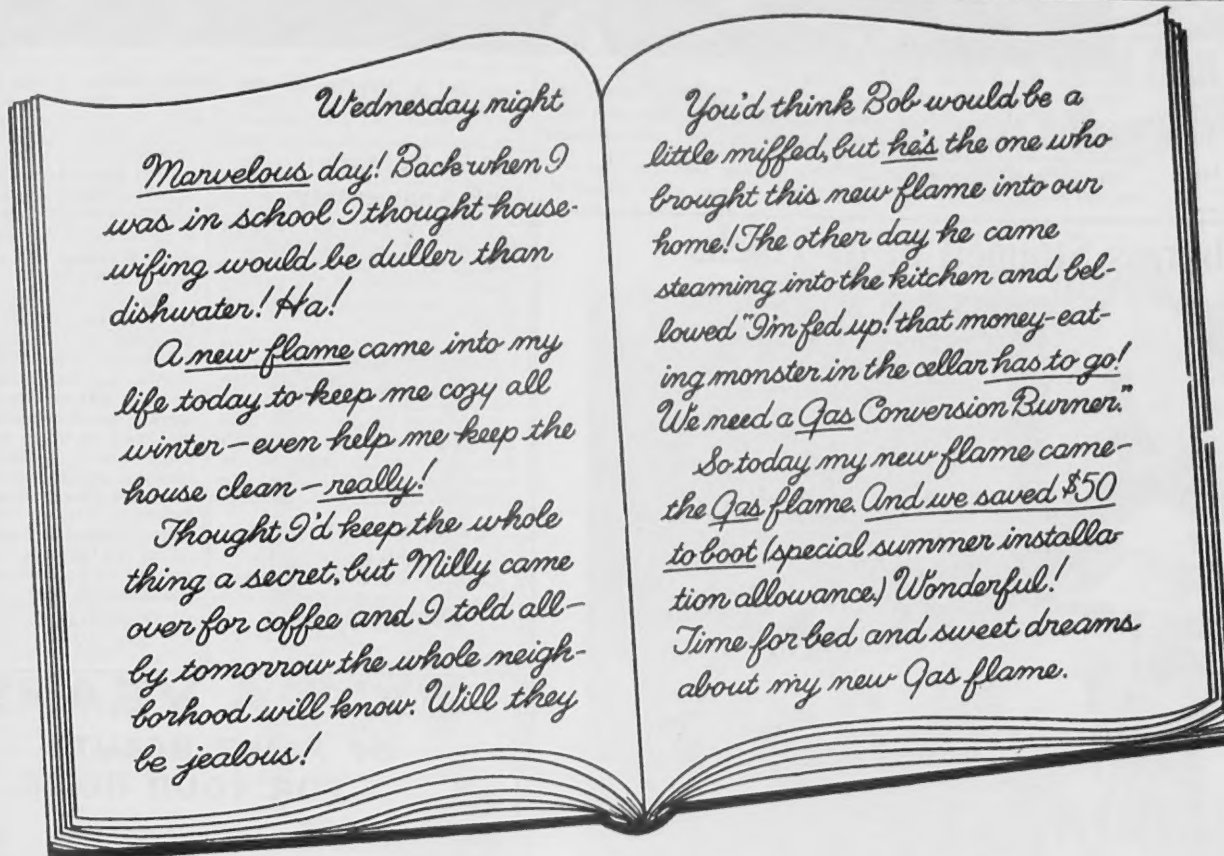 Wednesday night
Marvelous day! Back when I
was in school I thought house-
wifing would be duller than
dishwater! Ha!
A new flame came into my
life today to keep me cozy all
winter – even help me keep the
house clean – really!
Thought I'd keep the whole
thing a secret, but Milly came
over for coffee and I told all –
by tomorrow the whole neigh-
borhood will know. Will they
be jealous!
You'd think Bob would be a
little miffed, but he's the one who
brought this new flame into our
home! The other day he came
steaming into the kitchen and bel-
lowed "I'm fed up! that money-eat-
ing monster in the cellar has to go!
We need a Gas Conversion Burner."
So today my new flame came –
the Gas flame. And we saved $50
to boot (special summer installa-
tion allowance.) Wonderful!
Time for bed and sweet dreams
about my new Gas flame.